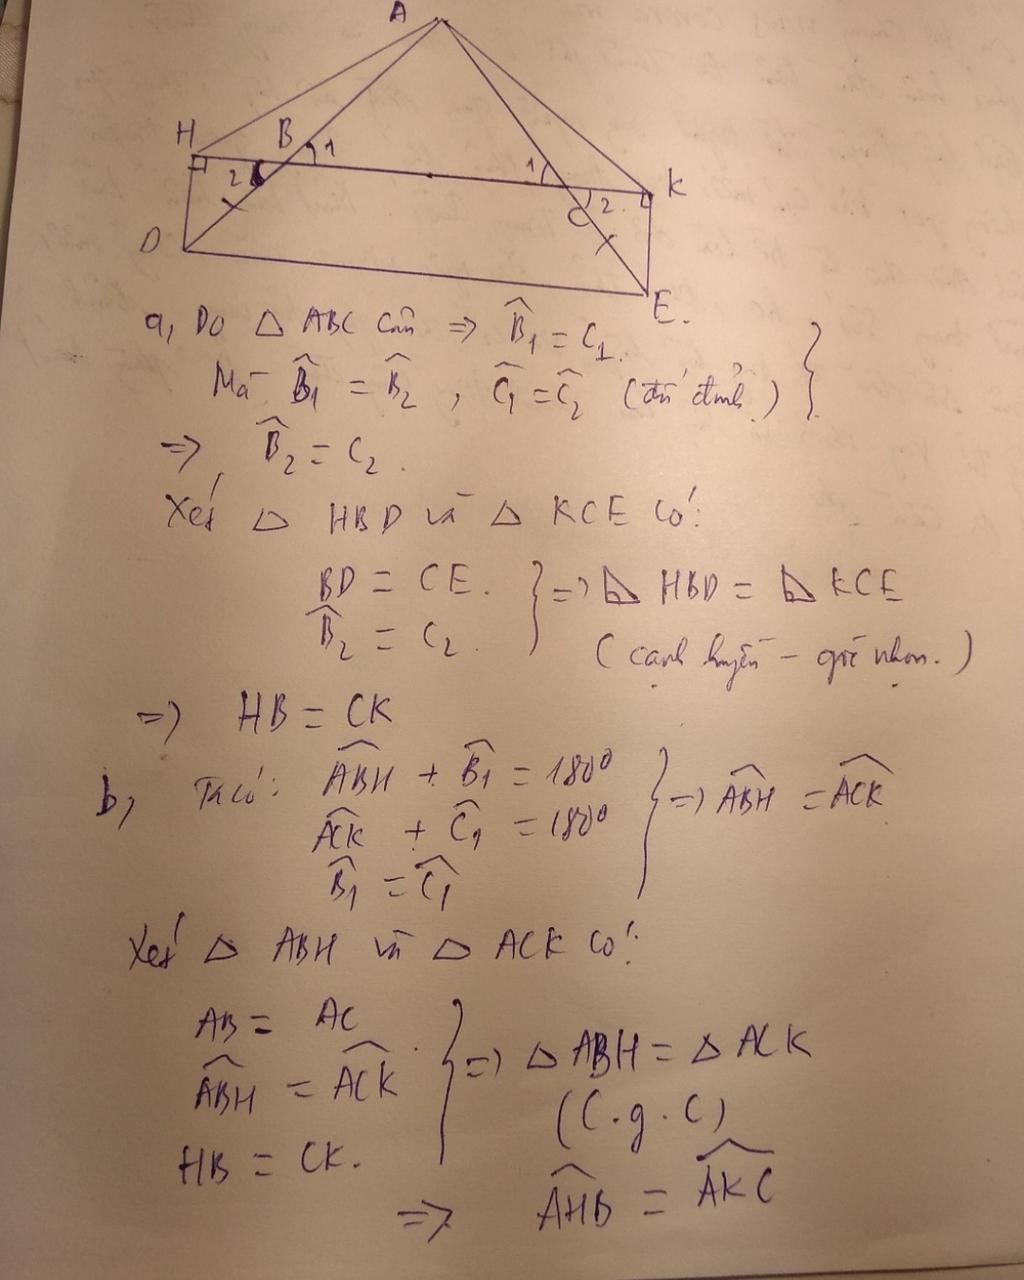 A
H B 1 1 K
2 2
D C
E.
a, Do △ ABC cân => B̂₁ = C₁.
Mà B̂₁ = B̂₂ , Ĉ₁ = Ĉ₂ (đối đỉnh) }
=> B̂₂ = C₂.
Xét △ HBD và △ KCE có:
BD = CE. } => ⊿ HBD = ⊿ KCE
B̂₂ = C₂. (cạnh huyền – góc nhọn.)
=> HB = CK
b, Ta có: ABH̑ + B̂₁ = 180⁰ } => ABH̑ = ACK̑
ACK̑ + Ĉ₁ = 180⁰
B̂₁ = Ĉ₁
Xét △ ABH và △ ACK có:
AB = AC
ABH̑ = ACK̑ } => △ ABH = △ ACK
(C.g.C)
HB = CK.
=> AHB̑ = AKC̑